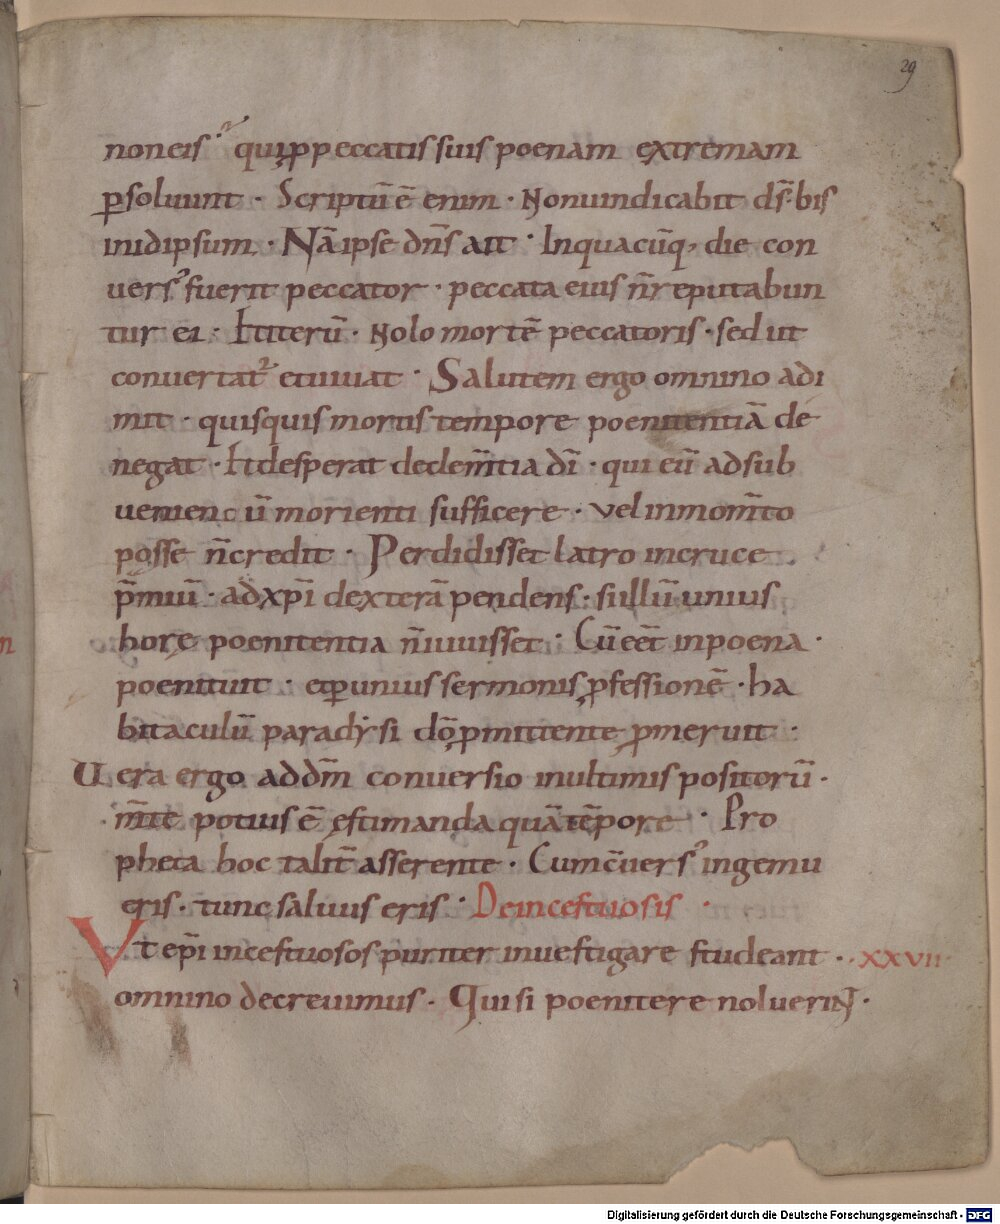 29
non eis · qui p̱ peccatis suis poenam extremam
ꝑsoluunt · Scriptū ē enim · Non uindicabit ds̄ bis
in idipsum · Nā ipse dn̄s ait · In quacūq; die con
uersꝰ fuerit peccator · peccata eius n̄ reputabun
tur ei · Et iterū · Nolo mortē peccatoris · sed ut
conuertat᷑ et uiuat · Salutem ergo omnino adi
mit · quisquis mortis tempore poenitentiā de
negat · Et desperat de clem̄tia dī · qui eū ad sub
ueniendū morienti sufficere · vel in mom̄to
posse n̄ credit · Perdidisset latro in cruce
p̄miū · ad xp̄i dexterā pendens · si illū unius
horę poenitentia n̄ iuuisset · Cū eēt in poena ·
poenituit · et ꝑ unius sermonis ꝓfessionē · ha
bitaculū paradysi dō ꝓmittente ꝓmeruit ·
Uera ergo ad dm̄ conuersio in ultimis positorū ·
m̄te potius ē ęstimanda quā tēpore · Pro
pheta hoc talit̄ asserente · Cum c̄uersꝰ ingemu
eris · tunc saluus eris · De incestuosis ·
Vt ep̄i incestuosos puriter inuestigare studeant · · xxvii ·
omnino decreuimus · Qui si poenitere noluerint ·
Digitalisierung gefördert durch die Deutsche Forschungsgemeinschaft - DFG